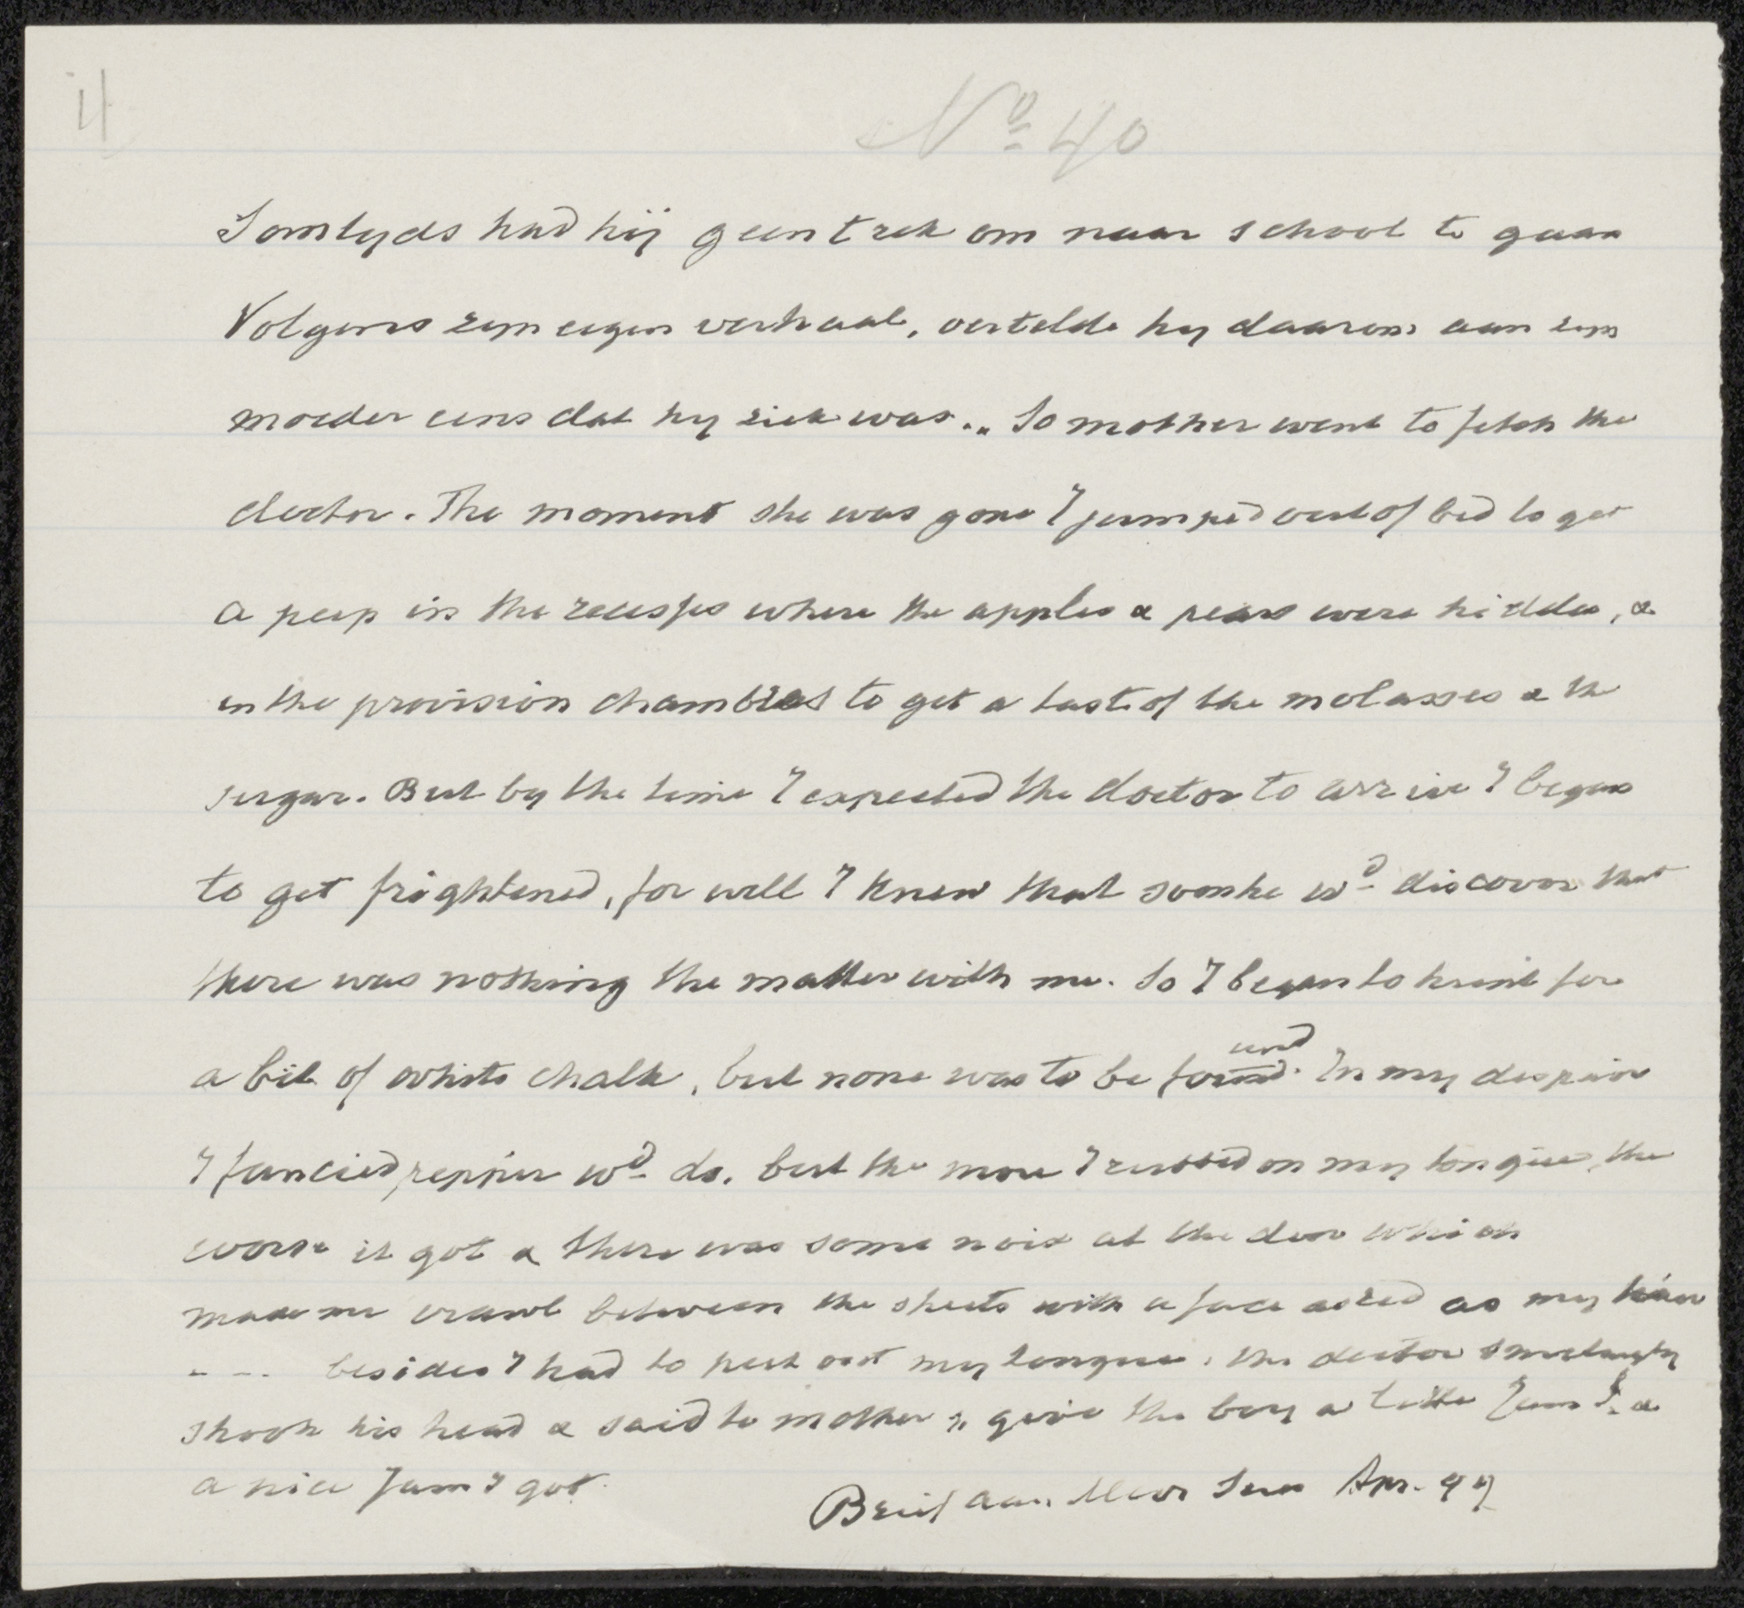 4
No 40
Somtyds had hij geen trek om naar school te gaan
Volgens zijn eigen verhaal, vertelde hy daarom aan zijn
moeder eens dat hy ziek was. „ So mother went to fetch the
doctor. The moment she was gone I jumped out of bed to get
a peep in the recesses where the apples & pears were hidden, &
in the provision chamber to get a taste of the molasses & the
sugar. But by the time I expected the doctor to arrive I began
to get frightened, for well I knew that soon he wd discover that
there was nothing the matter with me. So I began to hunt for
a bit of white chalk, but none was to be found. In my despair
und
I fancied pepper wd do, but the more I rubbed on my tongue, the
worse it got & there was some noise at the door which
made me crawl between the sheets with a face as red as my hair
- - - besides I had to put out my tongue. The doctor
shook his head & said to mother „ give the boy a little Jam & a
a nice Jam I got.
Brief aan Apr. 99